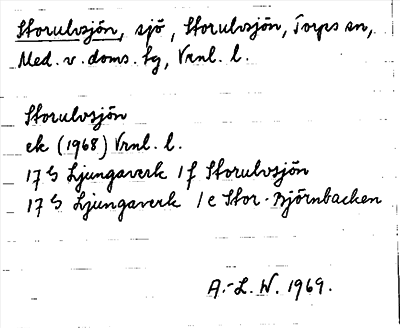 Storulvsjön, sjö, Storulvsjön, Torps sn,
Med. v. doms. tg, Vrnl. l.
Storulvsjön
ek (1968) Vrnl. l.
17 G Ljungaverk 1 f Storulvsjön
17 G Ljungaverk 1 e Stor-Björnbacken
A.-L. W. 1969.